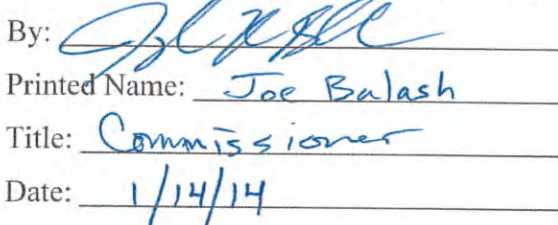 By:
Printed Name: Joe Balash
Title: Commissioner
Date: 1/14/14